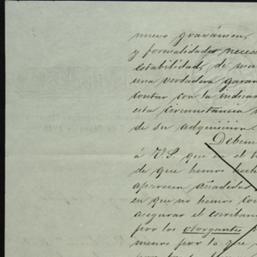 nuevo gravámen,
y formalidades neces
estabilidad, de ma
una verdadera garan
contar con la indica
esta circunstancia
de su adquisicion
Debem
á V.S. que en el
de que hemos hech
aparecen añadidas
en que no hemos
asegurar el
pero los otorgantes
menos pero la que